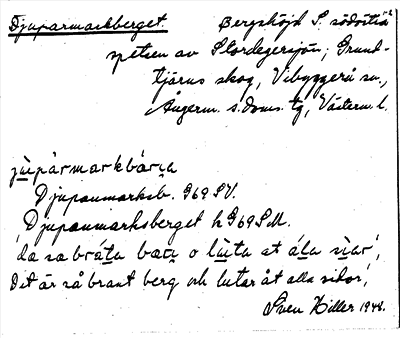 Djuparmarkberget. Bergshöjd S. södöstra
spetsen av Stordegersjön; Grund-
tjärns skog, Vibyggerå sn.,
Ångerm. s. doms. tg, Västern. l.
jùpàrmarkbærꞬa
Djupanmarksb. G69SV.
Djupanmarksberget h G69SM.
Det är så brant berg och lutar åt alla sidor,
Sven Hiller 1948.